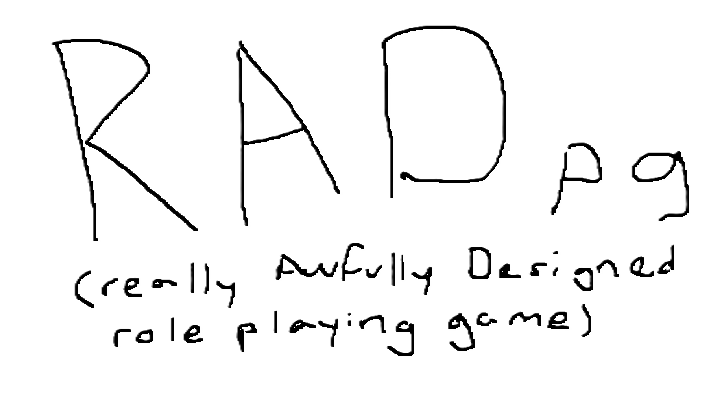 RAD pg
(really Awfully Designed
role playing game)